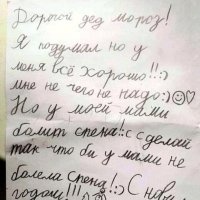 Дорогой дед мороз!
Я подумал но у
меня всё хорошо!!:)
мне не чего не надо:)☺♡
Но у моей мами
болит спена!:с сделай
так что би у мами не
болела спена!:) С новим
годом!!!:)